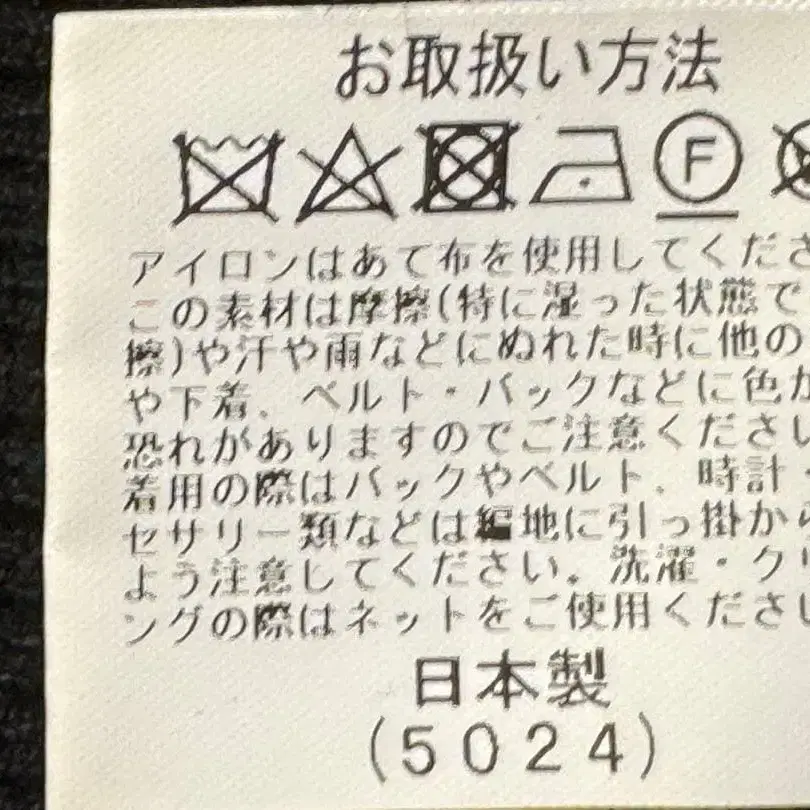 お取扱い方法
F
アイロンはあて布を使用してくださ
この素材は摩擦(特に湿った状態で
擦)や汗や雨などにぬれた時に他の
や下着、ベルト・バックなどに色が
恐れがありますのでご注意ください
着用の際はバックやベルト、時計・
セサリー類などは編地に引っ掛から
よう注意してください。洗濯・クリ
ングの際はネットをご使用ください
日本製
(5024)